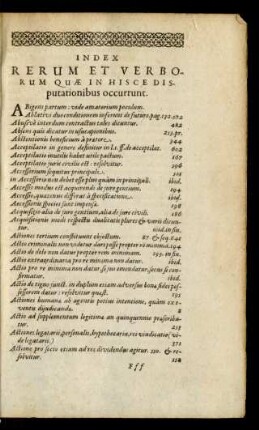 INDEX
RERUM ET VERBO-
RUM QUÆ IN HISCE DIS-
putationibus occurrunt.
ABigens partum: vide amatorium poculum.
Ablativi duo conditionem inferunt de futuro. pag. 191.
Abusivè interdum contractus talos dicuntur. 462
Absens quis dicatur in usucapionibus. 213. pr.
Abstentionis beneficium à prætore. 344
Acceptilatio in genere definitur in l. 1. ff. de acceptilat. 602
Acceptilatio inutilis habet utile pactum. 167
Acceptilatio juris civilis est: resolvitur. 196
Accessorium sequitur principale. 111
in Accessorio non debet esse plus quàm in principali. ibid.
Accessio modus est acquirendi de jure gentium. 194
Accessio, quatenus differat à specificatione. ibid.
Accessorie species sunt impensæ. 198
Acquisitio alia de jure gentium, alia de jure civili. 186
Acquisitionis modi respectu dominii plures quàm verè dicuntur.
ibid. in fin.
Actiones tertium constituunt objectum. 87 & seq. 642
Actio criminalis non videtur dari posse propter rē minimā. 194
Actio de dolo non datur propter rem minimam. 193. in fin.
Actio extraordinaria pro re minima non datur. ibid.
Actio pro re minima non datur, si res sit in se una, secus si con-
firmatur. ibid.
Actio de tigno juncto in duplum etiam adversus bonæ fidei pos-
sessorem datur: resolvitur quæst. 191
Actiones humana ab agentis potius intentione, quàm ex e-
ventu dijudicanda. 9
Actio ad supplementum legitimæ an quinquennio præscriba-
tur. 313
Actiones legatarii, personalis, hypothecaria, rei vindicatio (vi-
de legatarii.)
Actione pro socio etiam ad res dividendas agitur. 220. & re-
solvitur. 228
Fff